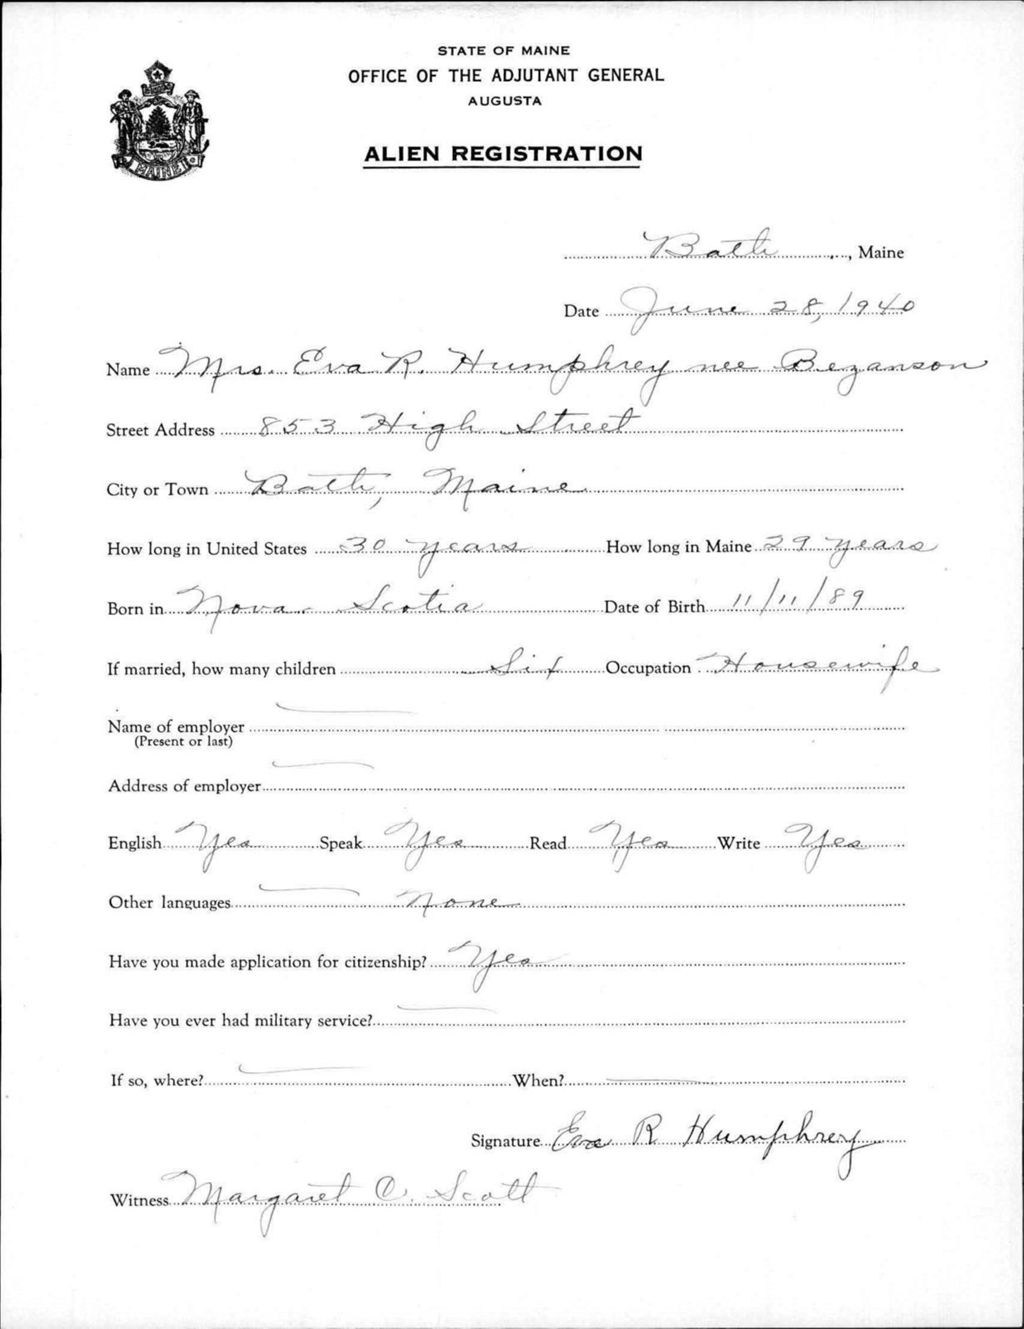 STATE OF MAINE
OFFICE OF THE ADJUTANT GENERAL
AUGUSTA
ALIEN REGISTRATION
MAINE
Bath, Maine
Date June 28, 1940
Name Mrs. Eva R. Humphrey nee Bezanson
Street Address 853 High Street
City or Town Bath, Maine
How long in United States 30 years How long in Maine 29 years
Born in Nova Scotia Date of Birth 11/11/89
If married, how many children Six Occupation Housewife
Name of employer
(Present or last)
Address of employer
English Yes Speak Yes Read Yes Write Yes
Other languages None
Have you made application for citizenship? Yes
Have you ever had military service?
If so, where? When?
Signature Eva R Humphrey
Witness Margaret C. Scott